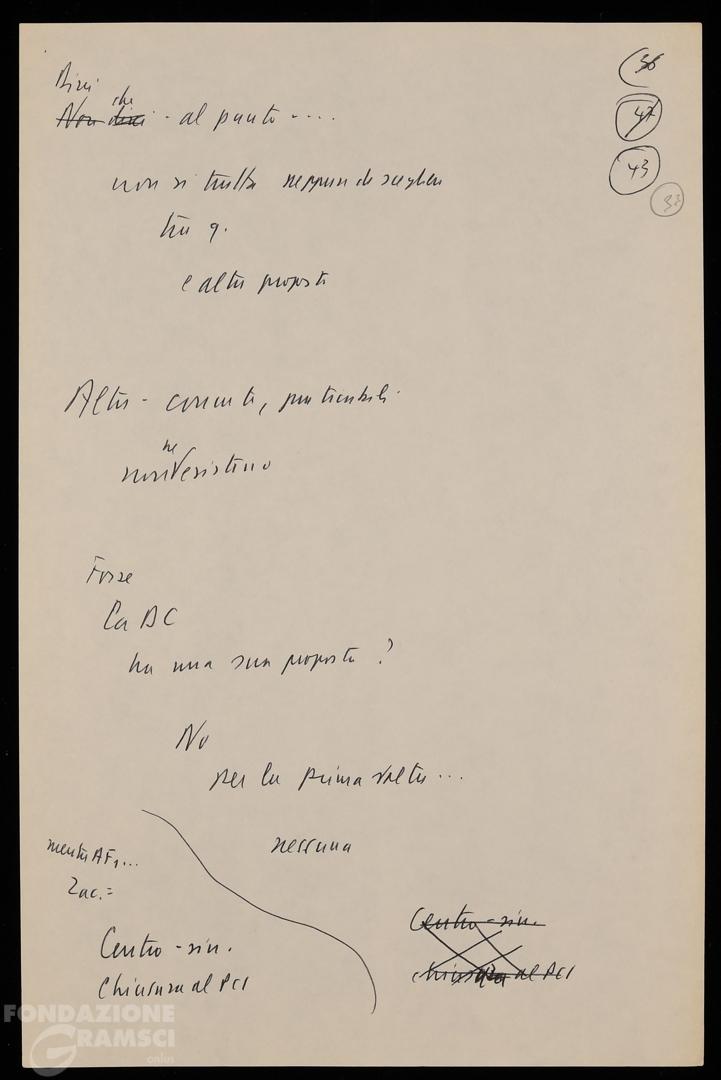 36
47
43
33
Dirai che
Non dirai - al punto ----
non si tratta neppure di scegliere
tra q.
e altre proposte
Altre - concrete, praticabili -
non ne esistono
Forse
la DC
ha una sua proposta ?
No
per la prima volta ...
nessuna
mentre AF, ...
Zac. =
Centro - sin.
Chiusura al PCI
Centro - sin.
chiusura al PCI
FONDAZIONE
GRAMSCI
onlus